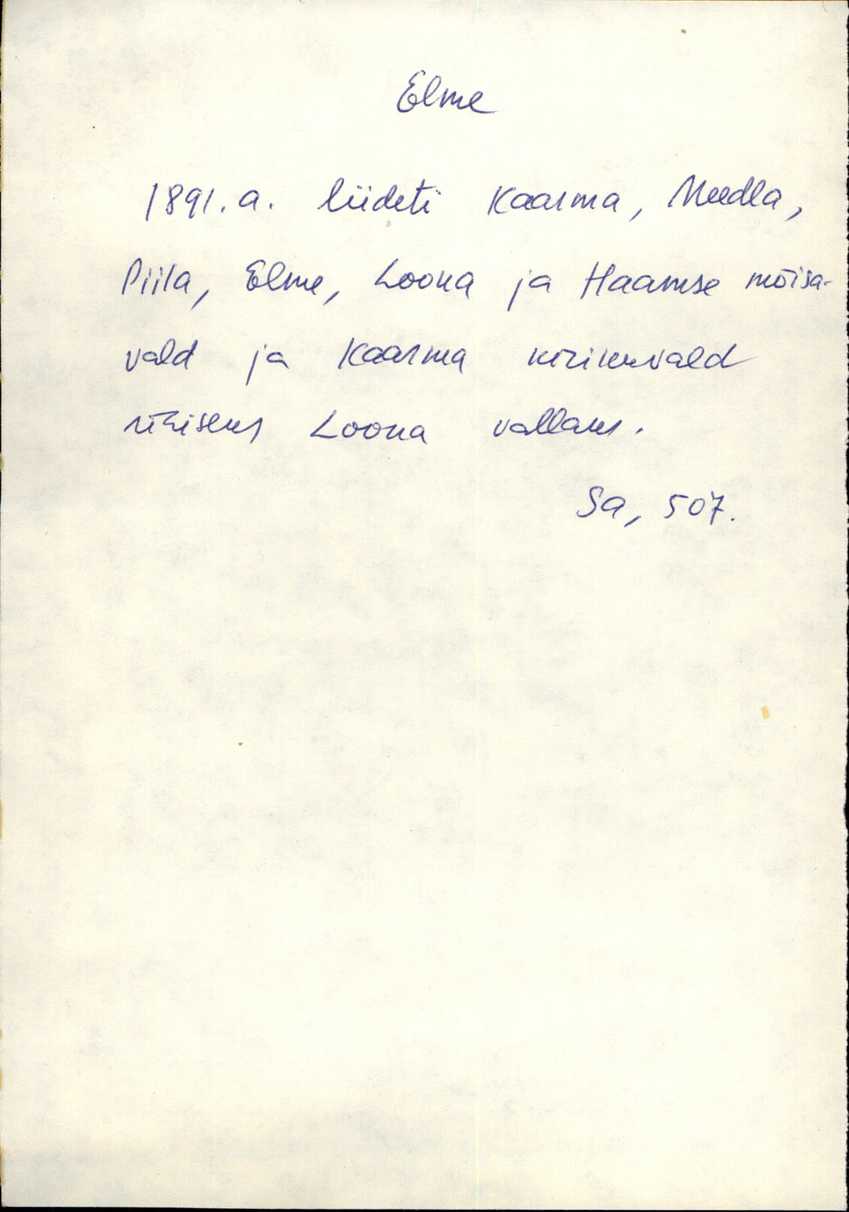 Elme
1891. a. liideti Kaarma, Meedla,
Piila, Elme, Loona ja Haamse mõisa-
vald ja Kaarma kirikuvald
ühiseks Loona vallaks.
Sa, 507.